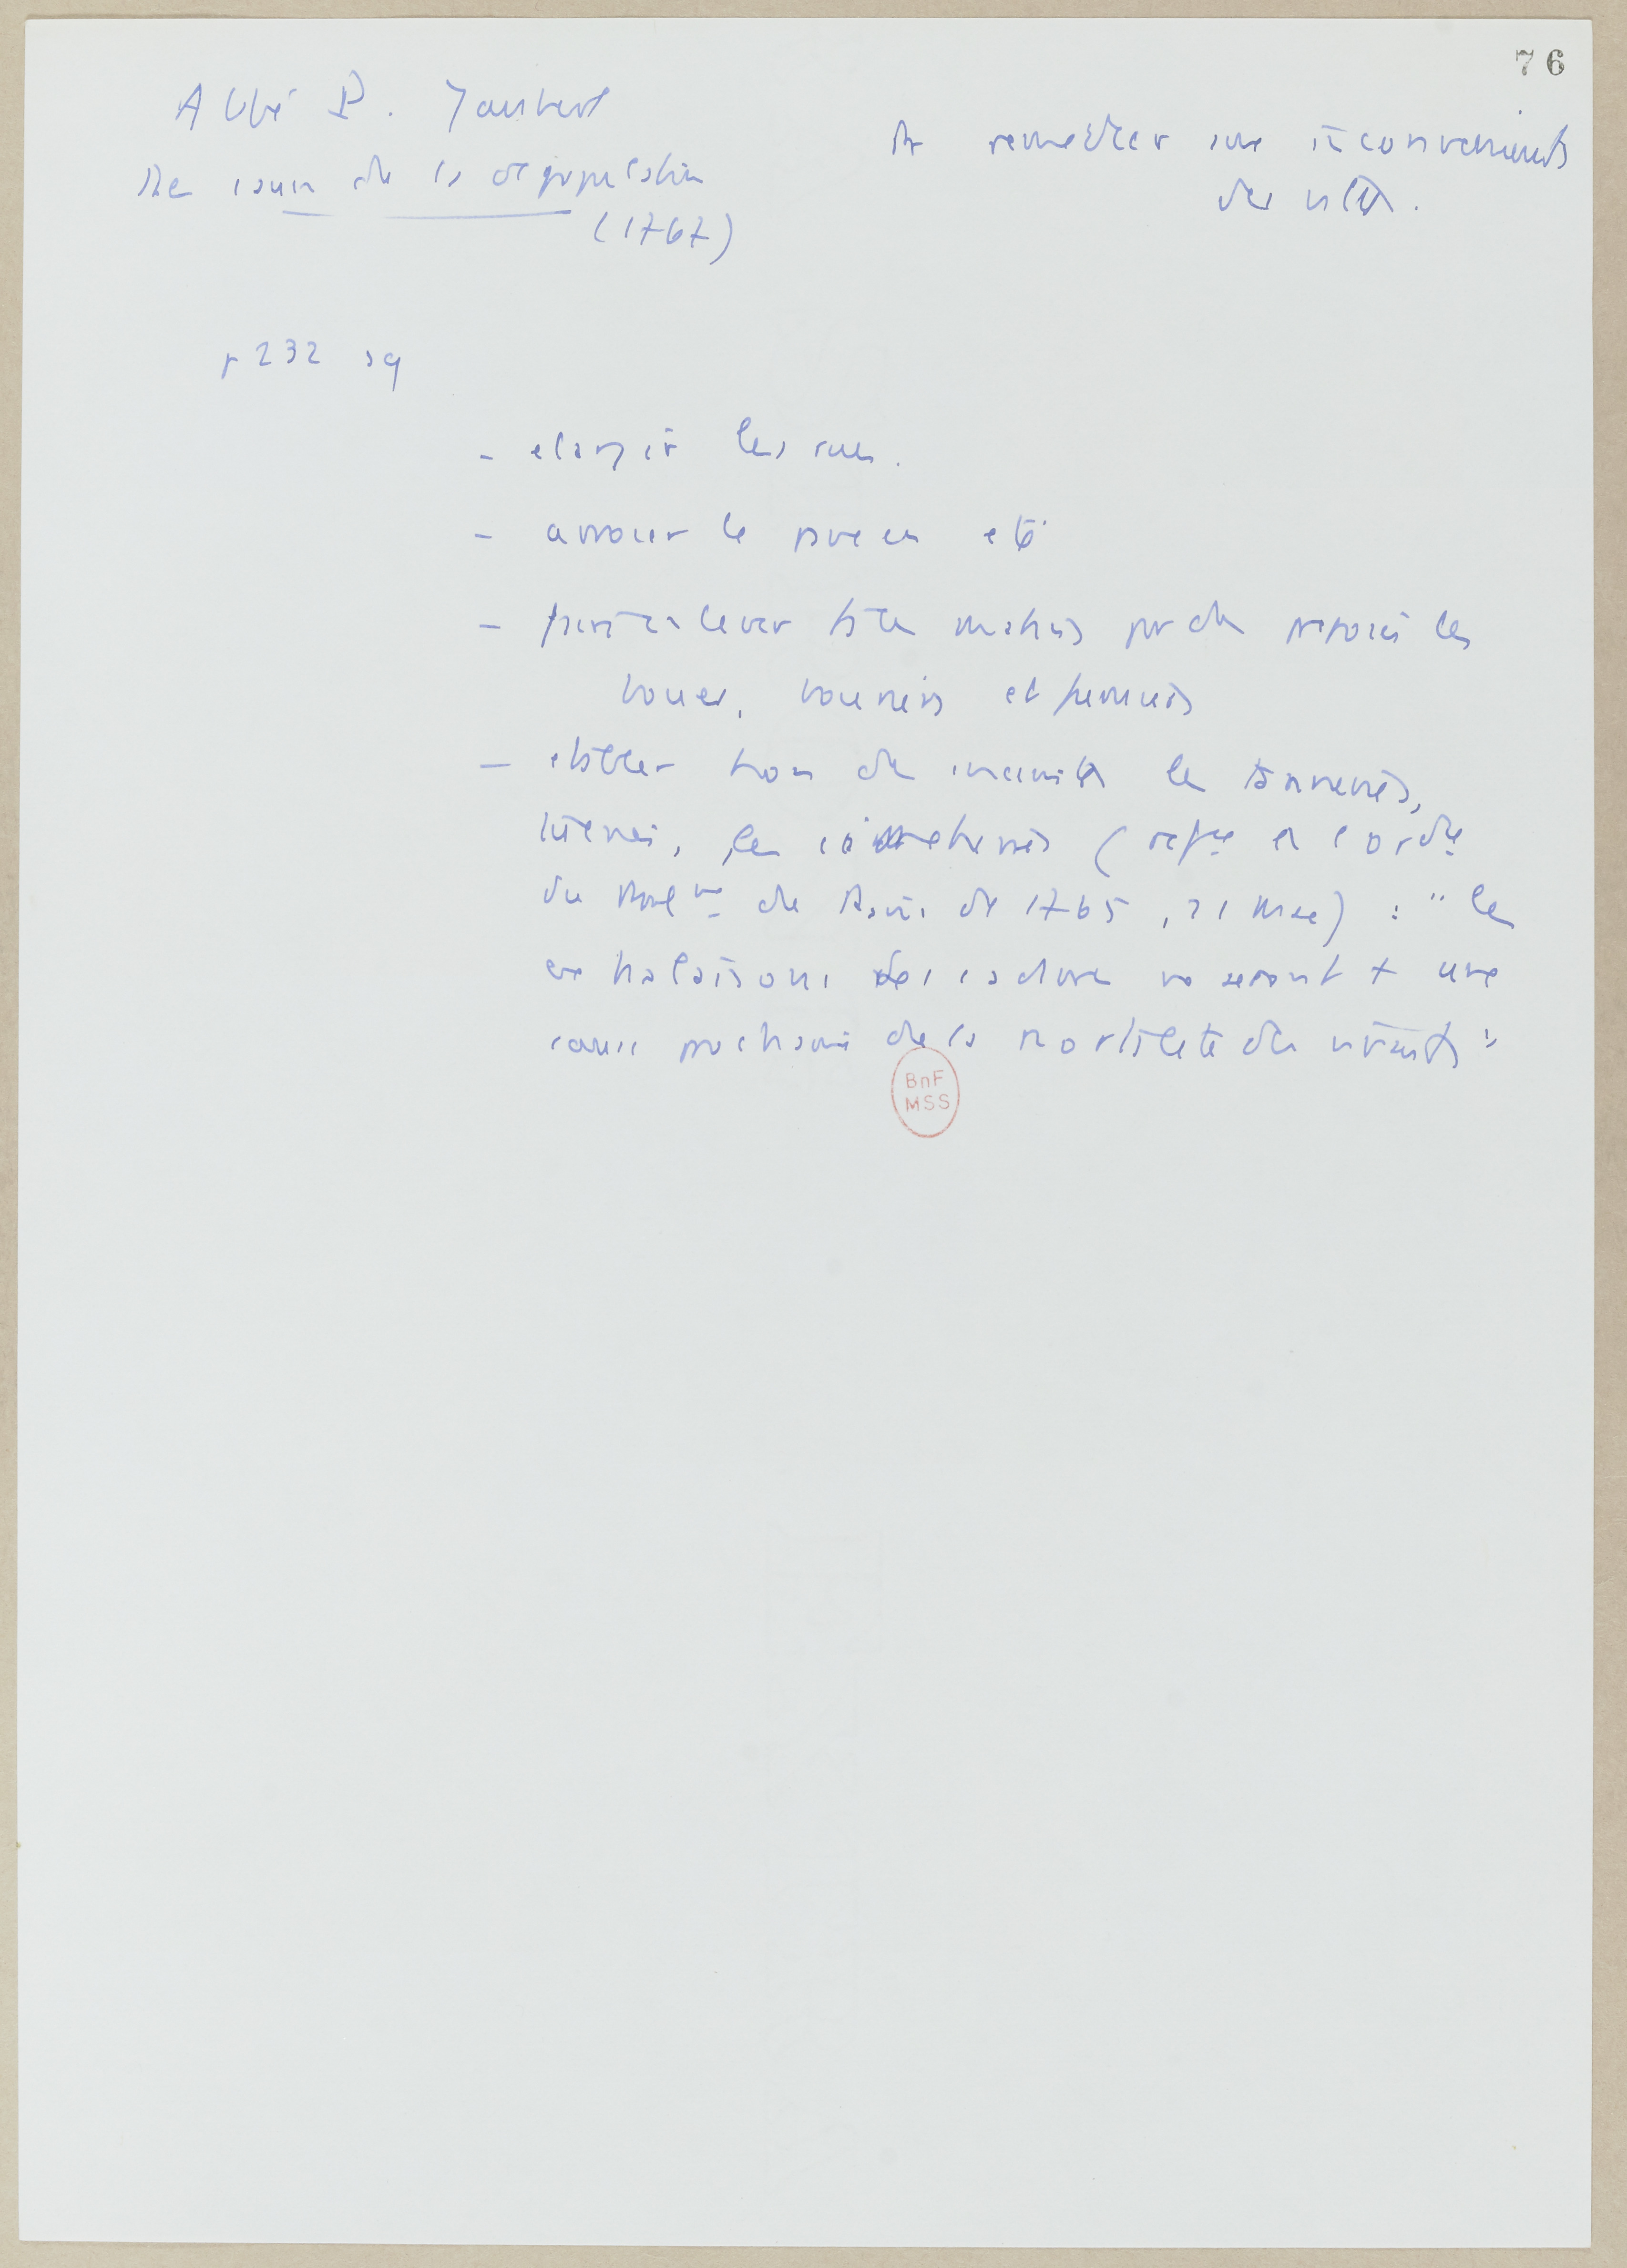 76
Abbé P. Jaubert
Des causes de la dépopulation
(1767)
Pr remedier aux inconvenients
des villes.
p 232 sq
- elargir les rues.
- arroser le pavé en eté
- faire enlever ts les matins par des preposés les
boues, bourriers et fumiers
- etablir hors de l'enceinte les tanneries,
les cimetieres (refce à l'ordce
du Parlmt de Paris de 1765, 21 Mai) : "les
exhalaisons des cadavres ne seront + une
cause prochaine de la mortalité des vivants"
BnF
MSS